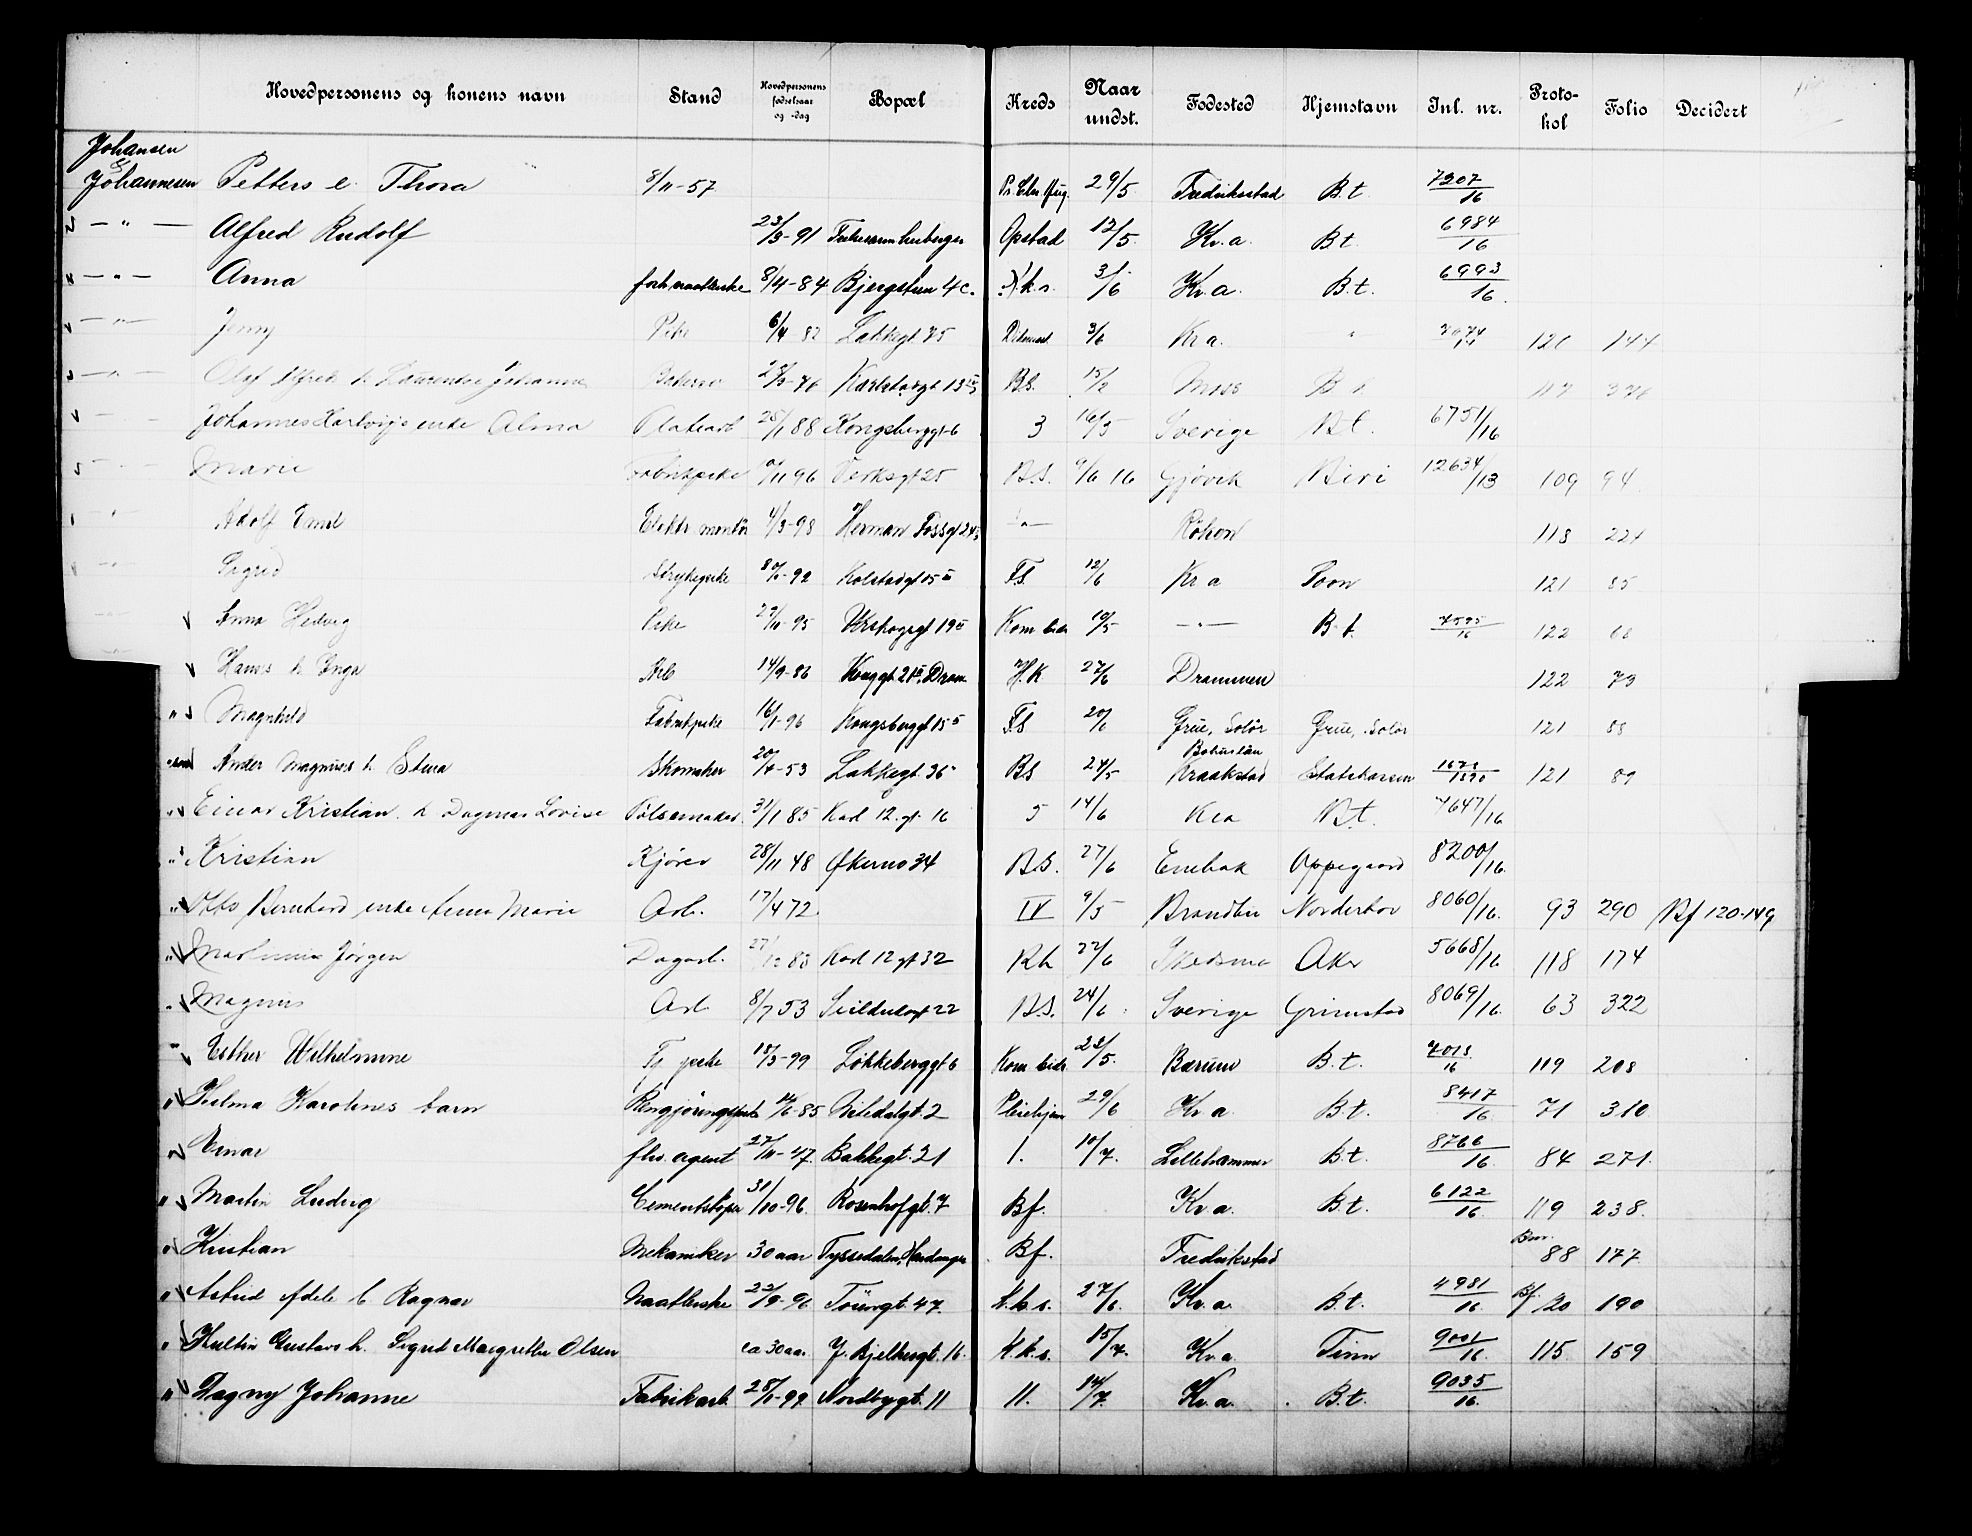 Hovedpersonens og konens navn Stand Hovedpersonens fødselsaar og -dag Bopæl Kreds Naar undst. Fødested Hjemstavn Inl. nr. Protokol Folio Decidert
Johansen
& Johannesen Petters e. Thora 8/11-57 29/5 Fredrikstad B.t. 7207/16
— " — Alfred Rudolf 23/3-91 Opstad 12/5 Kr.a. B.t. 6984/16
— " — Anna 8/4-84 Bjergstien 4c. 3/6 Kr.a. B.t. 6993/16
— " — Jenny Pike 6/4 82 Lakkegt. 75 3/6 Kr.a. " 121 144
— " — Olaf Alfred h. Laurentse Johanne Karlstadgt 13 B.S. 15/2 Moss B.t. 117 376
— " — Johannes Hartvigs enke Alma 25/1 88 Kongsberggt 6 3 16/5 Sverige B.t. 6751/16
— " — Marie Fabrikpike 9/11 96 Verksgt 25 B.S. 9/6 16 Gjøvik Biri 12634/13 109 94
" Adolf Emil Elektr. montør 4/3-98 Herman Fossgt 24 — " — Røken 118 221
" Sigrid Strykepike 8/6-92 Kolstadgt 15 II F.S. 12/6 Kr a Moon 121 85
— " — Anna Hedvig Pike 27/11-95 Urskogsgt 19 II Kom bidr 19/5 — " — B.t. 7595/16 122 60
Hans h. Inga Arb 14/9-86 Konggt. 21 II, Dram H.K 27/6 Drammen 122 73
" Magnhild Fabrikpike 16/1-96 Kongsberggt 15 5 F.S 20/6 Grue, Solør Grue, Solør 121 88
Ander Magnus h. Stina Skomaker 20/4-53 Lakkegt. 36 BS 24/5 Bohuslän Kraakstad Statskassen 121 89
" Einar Kristian h. Dagmar Lovise Pølsemaker 31/1 85 Karl 12. gt. 16 5 14/6 Kra B.t. 7647/16
" Kristian Kjører 28/11 48 Økernv 34 B.S. 27/6 Enebak Oppegaard 8200/16
" Otto Bernhard enke Anna Marie Arb. 17/4 72 IV 9/5 Brandbu Norderhov 8060/16 93 290 Bf 120-149
" Martinius Jørgen Dagarb. 27/12 83 Karl 12 gt 32 Rh 22/6 Skedsmo Aker 5668/16 118 174
" Magnus Arb 8/7 53 Seildugsgt 22 B.S. 24/6 Sverige Grimstad 8069/16 63 322
" Esther Wilhelmine Tj pike 18/3-99 Løkkeberggt 6 Kom bidr 23/5. Bærum B.t. 7018/16 119 208
" Hulma Karolines barn Rengjøringspike 14/6-85 Nildalgt. 2 Pleiehjem 29/6 Kr.a. B.t. 8417/16 71 310
" Einar fhv. agent 27/11-47 Bakkegt. 21 1. 10/7. Lillehammer B.t. 8766/16 84 271.
" Martin Ludvig Cementstøper 31/10-96 Rosenhofgt. 7 Bf. Kr.a. B.t. 6122/16 119 238.
" Kristian Mekaniker 30 aar Tyssedalen, Hardanger Bf. Fredrikstad 88 177.
" Astrid Adele b Ragnar Naatlerske 22/9-96 Tøiengt. 47 K.k.s. 27/6. Kr.a. B.t. 4981/16 Bf 120 190
" Hultin Gustavs h. Sigrid Margrethe Olsen ca 30 aar J. Bjelkesgt. 16 K.k.s. 15/7. Kr.a. Tinn 9001/16 115 159
" Dagny Johanne Fabrikarb. 25/1-99 Nordbygt. 11 11. 14/7 Kr.a. B.t. 9035/16